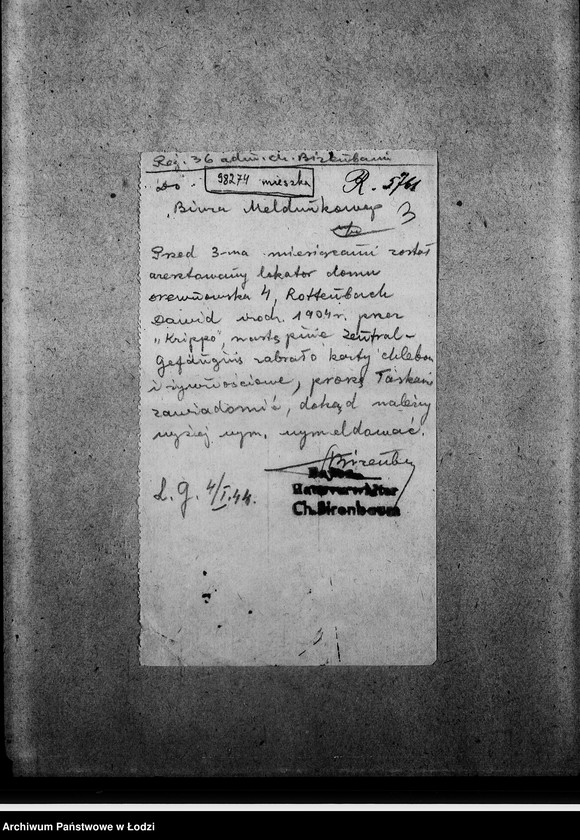 Rej. 36 adm. ch. Birenbaum
Do 98274 mieszka R. 5761
Biura Meldunkowego 3
Przed 3-ma miesiącami został
aresztowany lokator domu
Drewnowska 4, Rottenbach
Dawid urodz. 1904 r. przez
"Krippo", następnie Zentral-
Gefängnis zabrało karty chlebow
i żywnościowe, proszę łaskawie
zawiadomić, dokąd należy
wyżej wym. wymeldować.
Birenb
L. G. 4/I.44.
Hausverwalter
Ch. Birenbaum
Archiwum Państwowe w Łodzi